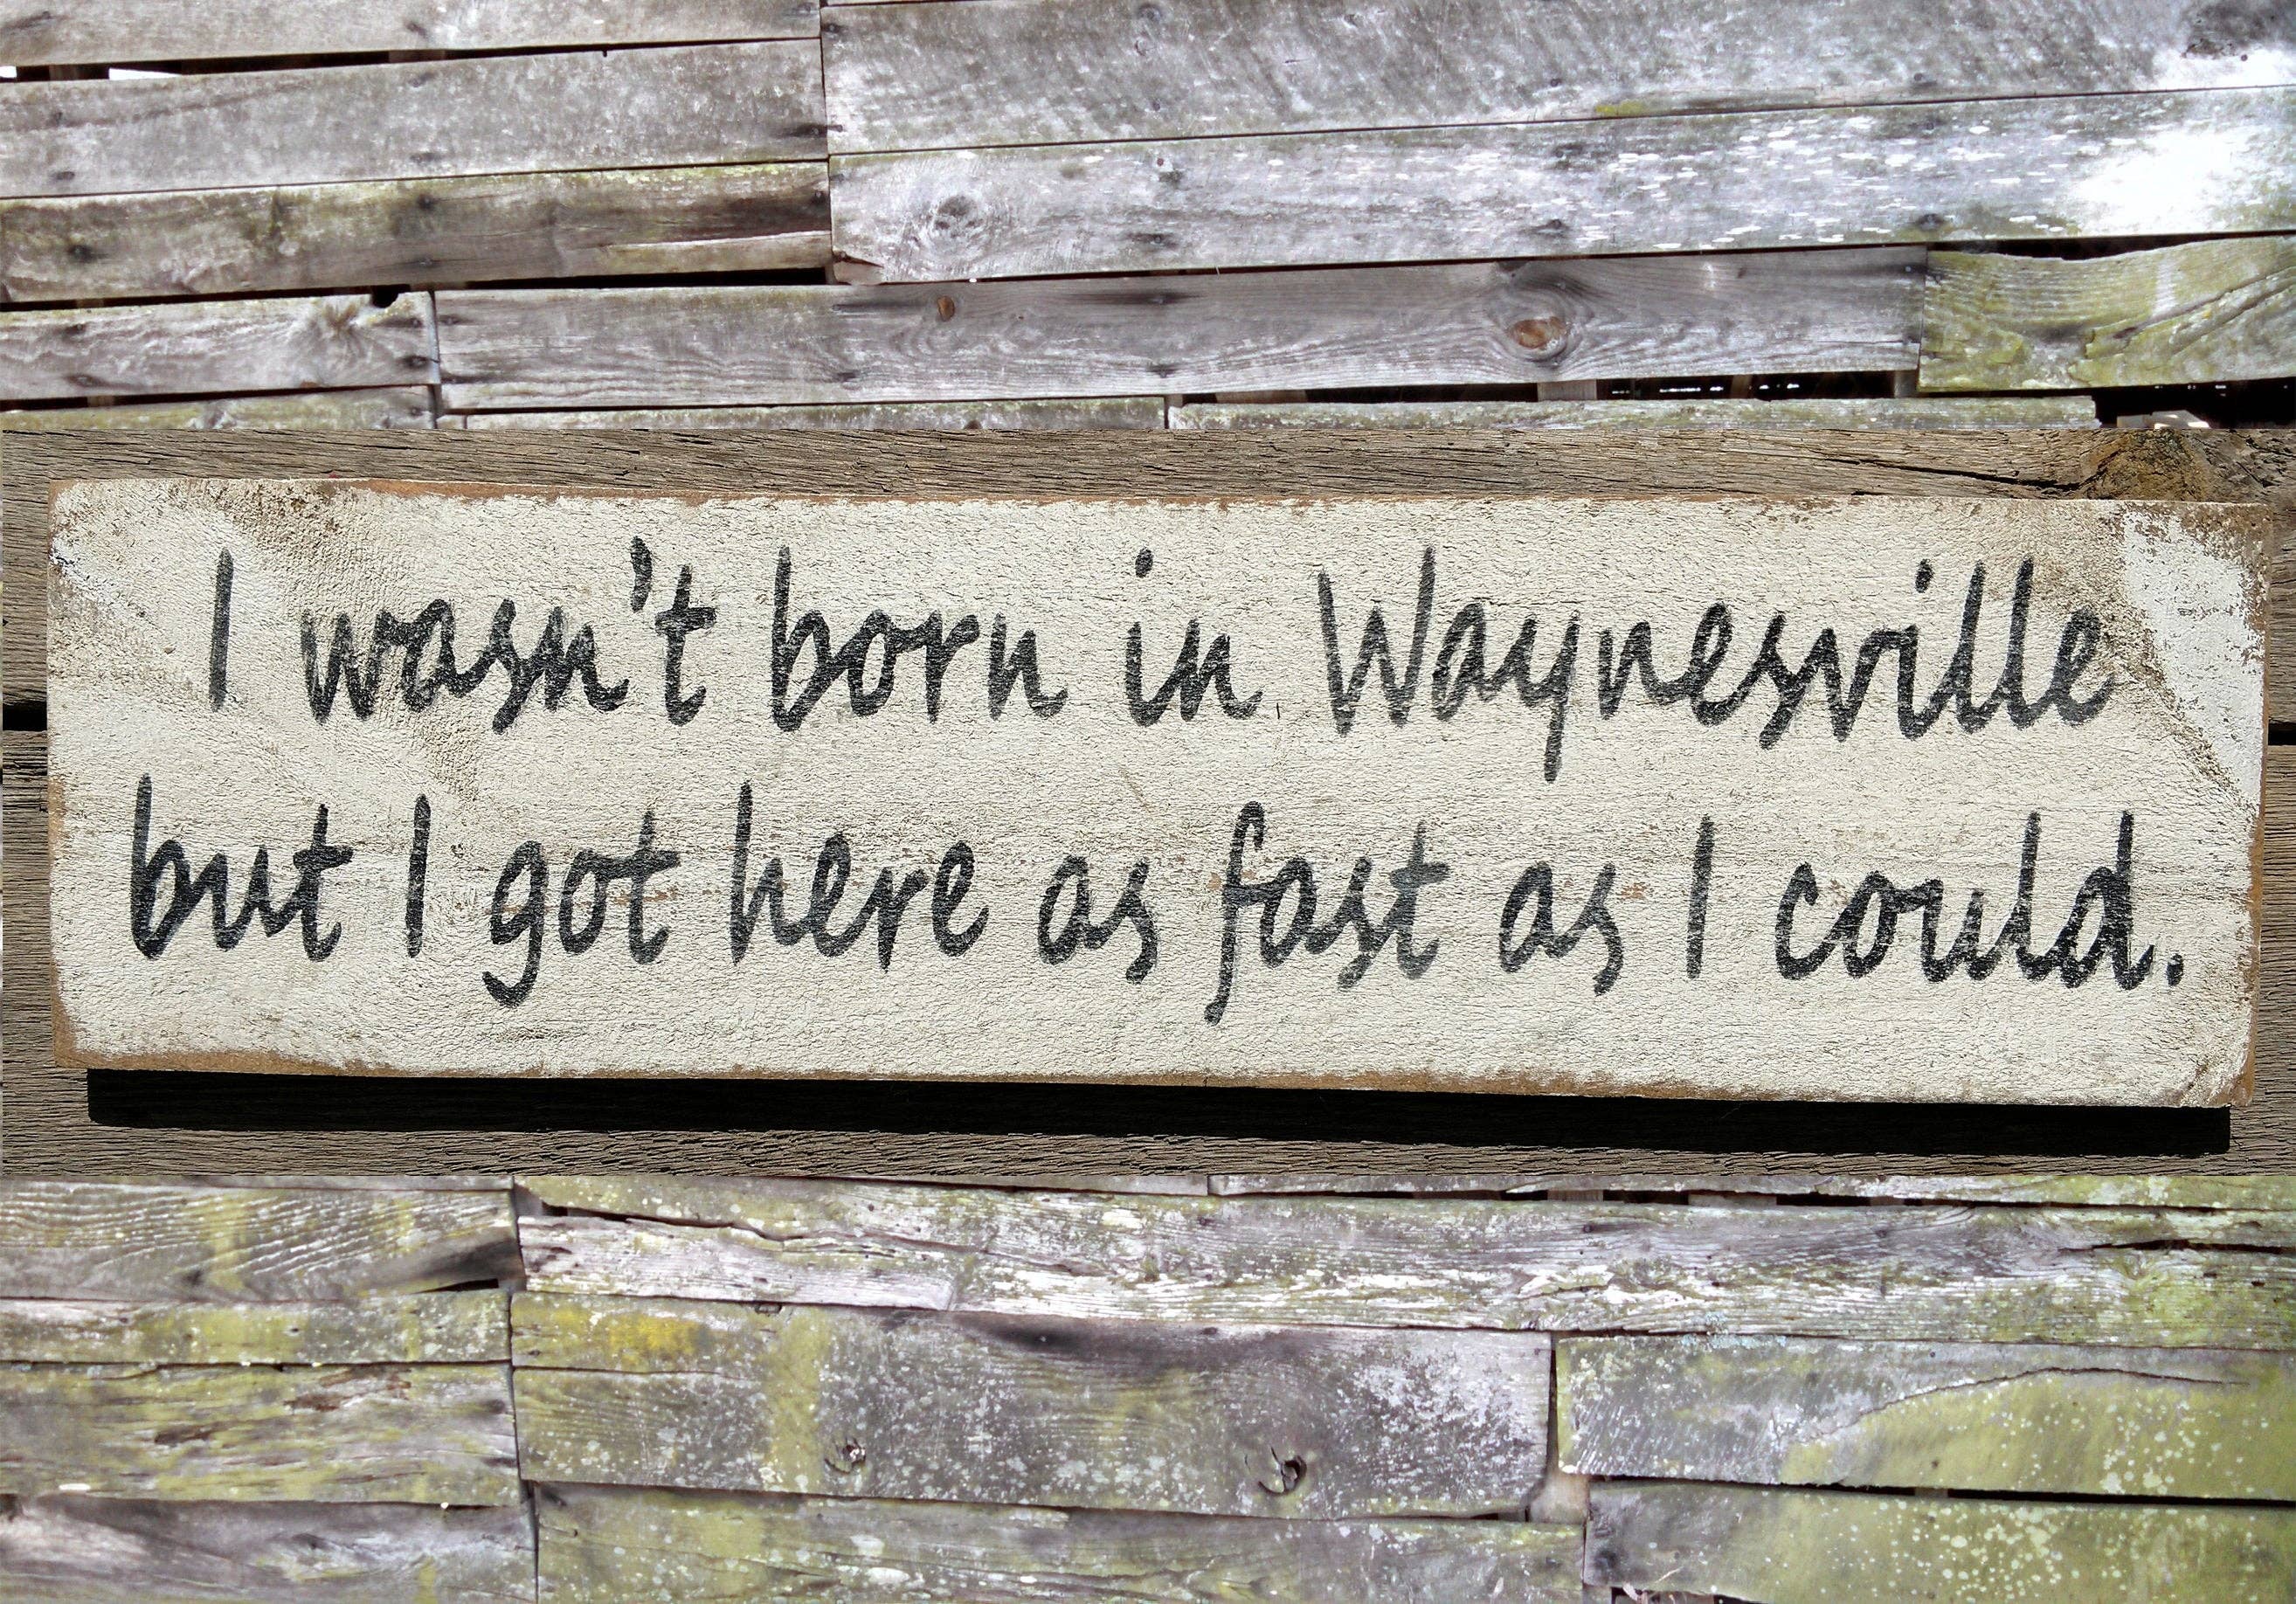 I wasn't born in Waynesville
but I got here as fast as I could.